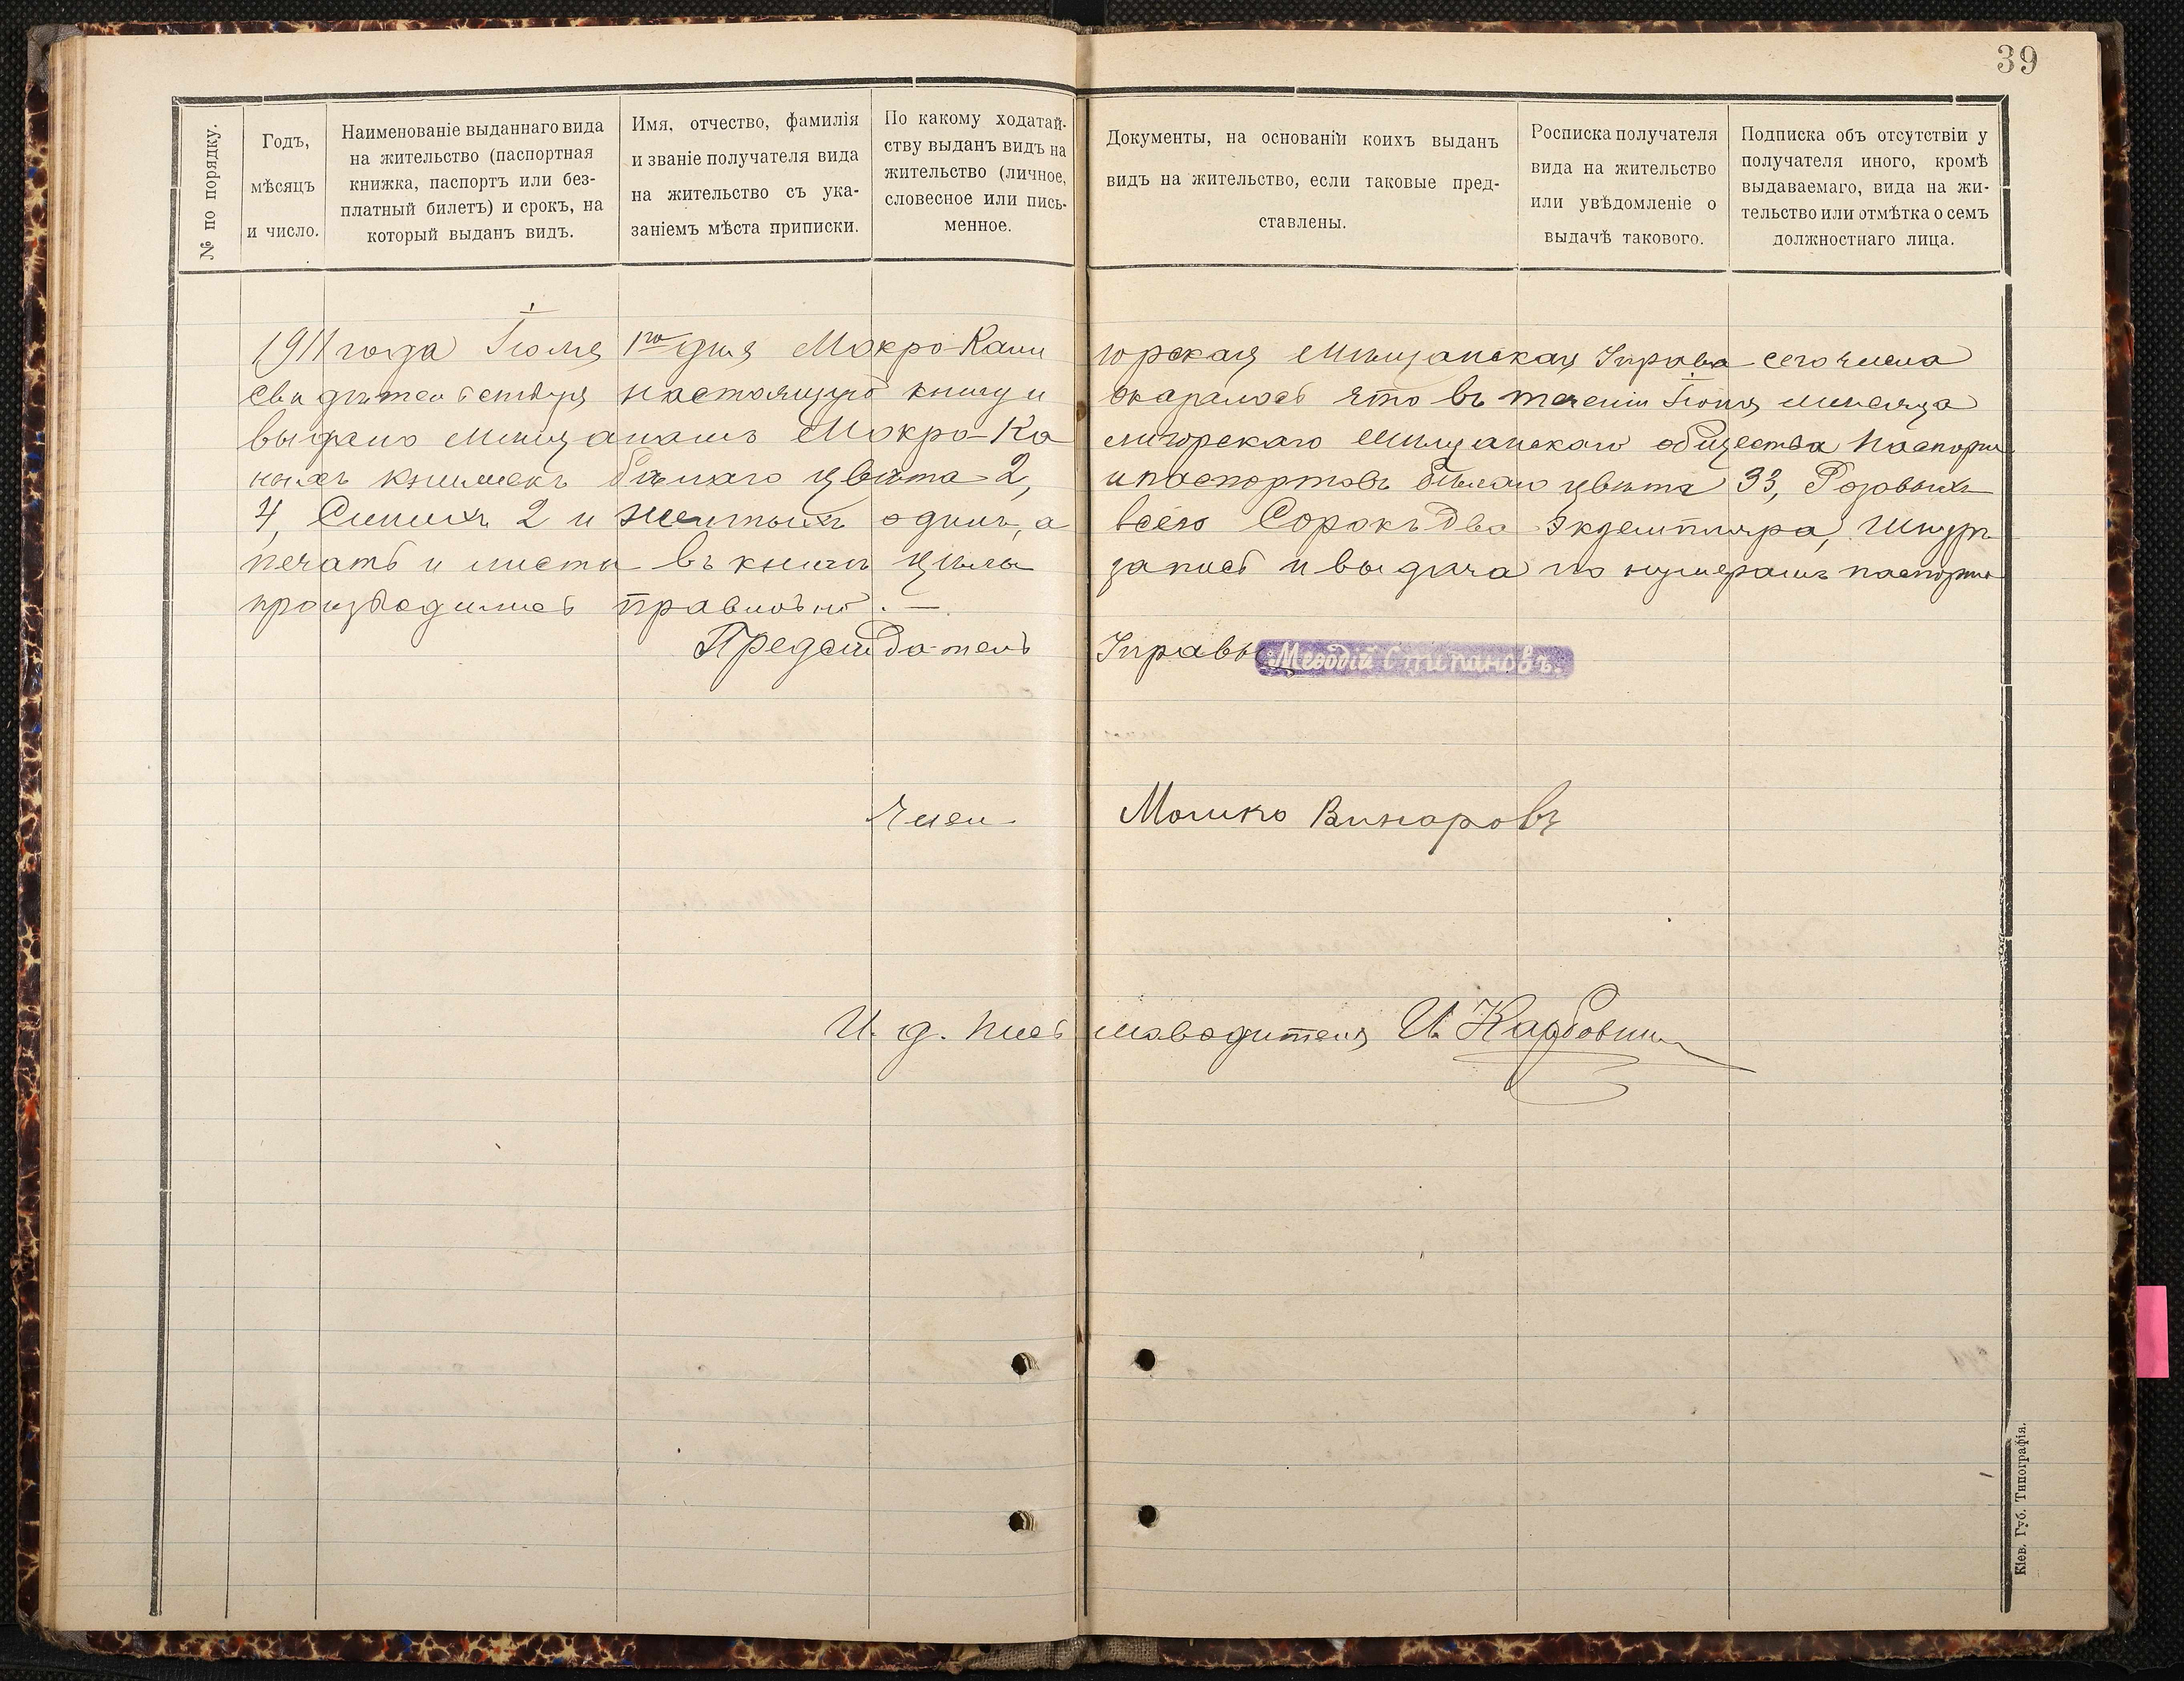 39
№ по порядку.
Годъ,
мѣсяцъ
и число.
Наименованіе выданнаго вида
на жительство (паспортная
книжка, паспортъ или без-
платный билетъ) и срокъ, на
который выданъ видъ.
Имя, отчество, фамилія
и званіе получателя вида
на жительство съ ука-
заніемъ мѣста приписки.
По какому ходатай-
ству выданъ видъ на
жительство (личное,
словесное или пись-
менное.
Документы, на основаніи коихъ выданъ
видъ на жительство, если таковые пред-
ставлены.
Росписка получателя
вида на жительство
или увѣдомленіе о
выдачѣ такового.
Подписка объ отсутствіи у
получателя иного, кромѣ
выдаваемаго, вида на жи-
тельство или отмѣтка о семъ
должностнаго лица.
1911 года Іюля 1го дня Мокро-Кали горская Мѣщанская Управа сего числа
свидѣтельствуя настоящую книгу и оказалось что въ теченіи Іюня мѣсяца
выдано мѣщанамъ Мокро-Ка лигорскаго Мѣщанскаго общества паспорт
ныхъ книжекъ бѣлаго цвѣта 2, и паспортовъ бѣлаго цвѣта 33, Розовыхъ
4, Синихъ 2 и желтыхъ одинъ, а всего Сорокъ два экземпляра, шнуръ
печать и листы въ книгѣ цѣлы запись и выдача по нумерамъ паспорто
производились правильно. —
Предсѣдатель Управы Меѳодій Степановъ.
Член Мошко Винаровъ
И. д. письмоводителя И. Карбовни
Кіев. Губ. Типографія.